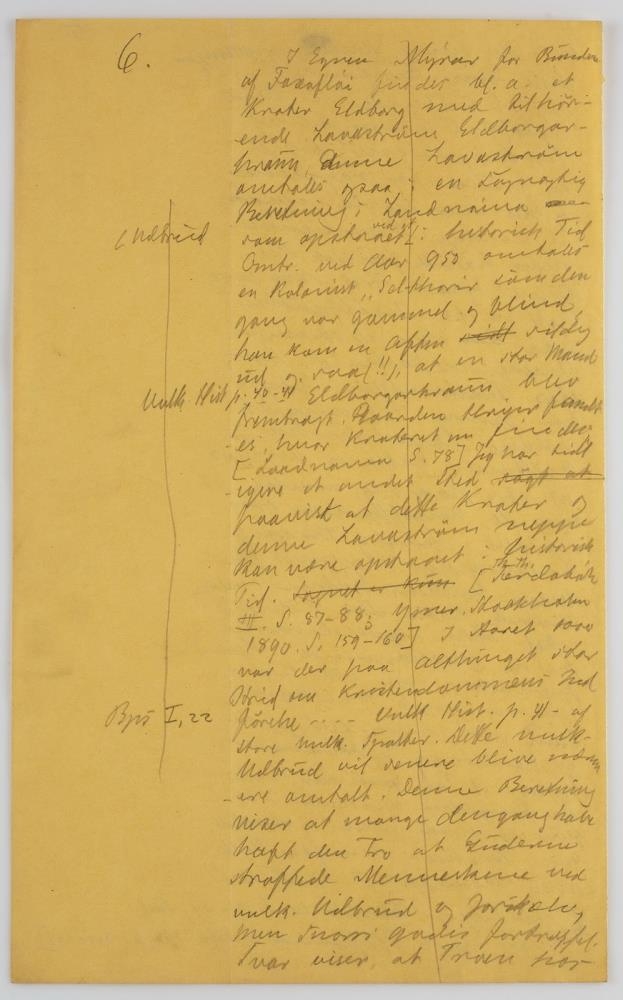 6.
I Egnen Mýrar for Bunden
af Faxaflói findes bl. a. et
Krater Eldborg med tilhör-
ende Lavaström Eldborgar-
hraun, denne Lavaström
omtales ogsaa i en
Beretning i Landnáma
som opstaaet i historisk Tid
ved
Udbrud
Omtr. ved Aar 950 omtales
en Kolonist, Sel-Thorir som den
gang var gammel og blind
han kom en Aften sildig
ud og saa (!!), at en stor Mand
Vulk. Hist. p. 40-41 Eldborgarhraun blev
frembragt. Gaarden
es, hvor Krateret nu findes
[Landnama S. 78] Jeg har tidl
igere et andet Sted sögt at
paavist at dette Krater og
denne Lavaström neppe
kan være opstaaet i historisk
Tid. Sagnet er kun [Th. Th.
III. S. 87-88; Ymer. Stockholm
1890. S. 159-160] I Aaret 1000
var der paa Althinget stor
Strid om Kristendommens Ind
Bps I, 22 förelse .... Vulk. Hist. p. 41 - af
store vulk. Spalter. Dette vulk.
Udbrud vil senere blive nærm
ere omtalt. Denne Beretning
viser at mange dengang have
haft den Tro at Guderne
straffede Menneskene ved
vulk. Udbrud og Jordskælv,
men Snorri godis
Svar viser, at Troen